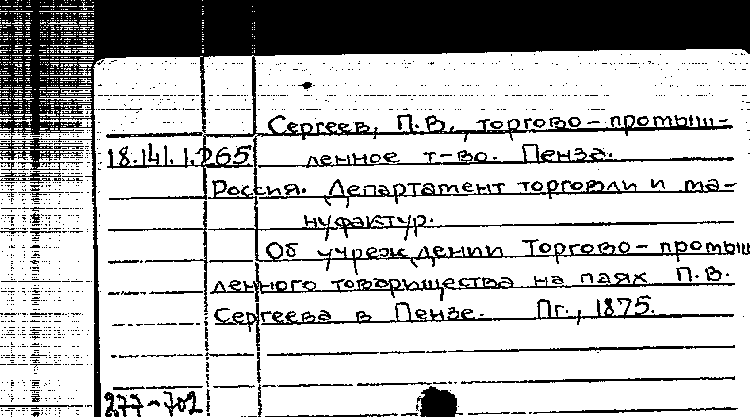 Сергеев, П.В., торгово-промыш-
18.141.1.265 ленное т-во. Пенза.
Россия. Департамент торговли и ма-
нуфактур.
Об учреждении Торгово-промыш
ленного товарищества на паях П.В.
Сергеева в Пензе. Пг., 1875.
277-702